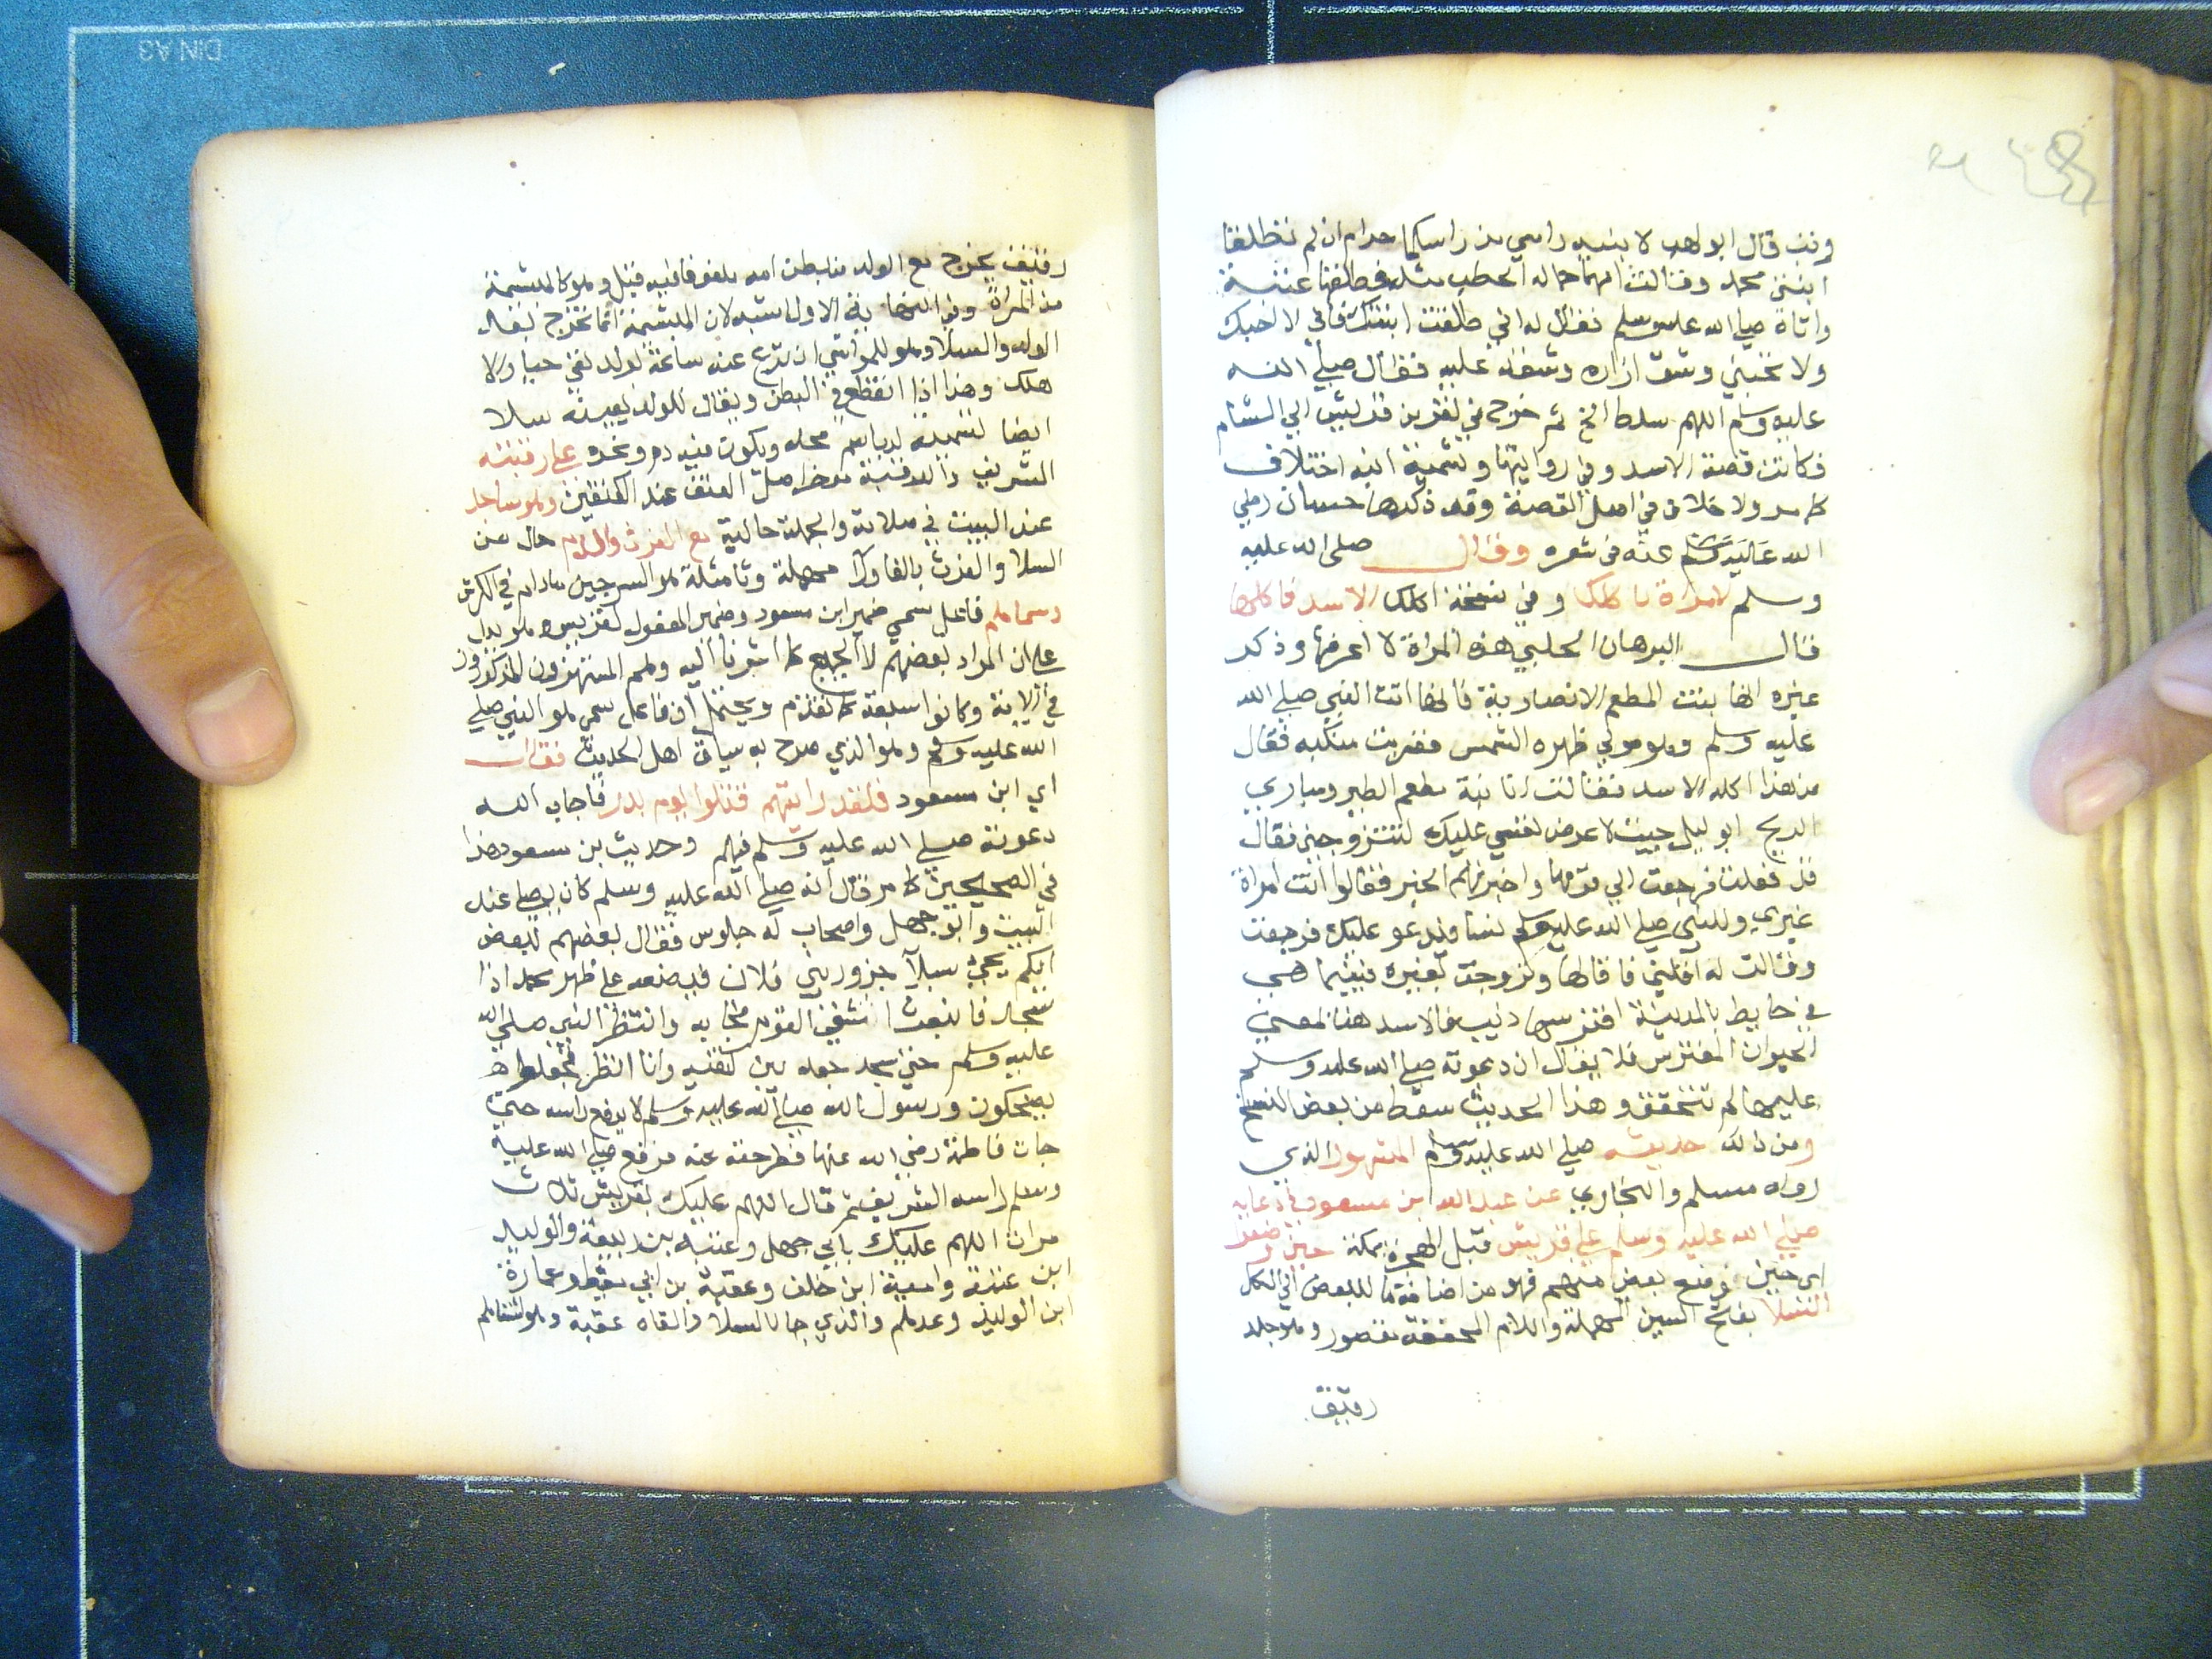 وتب قال ابو لهب لابنيه راسي من راسكما حرام ان لم تطلقا
ابنتي محمد وقالت امهما حمالة الحطب مثله فطلقها عتبة
واتاه صلي الله عليه وسلم فقال له اني طلقت ابنتك فاني لا احبك
ولا تحبني وشق ازاره وشفه عليه فقال صلي الله
عليه وسلم اللهم سلط الخ ثم خرج في نفر من قريش الي الشام
فكانت قصة الاسد وفي روايتها وتسمية ابنه اختلاف
كما مر ولا خلاف في اصل القصة وقد ذكرها حسان رضي
الله عنه في شعره وقال صلى الله عليه
وسلم لامراة ياكلك وفي نسخة اكلك الاسد فاكلها
قال البرهان الحلبي هذه المراة لا اعرفها وذكر
غيره انها بنت المطعم الانصارية فانها اتت النبي صلي الله
عليه وسلم وهو مولي ظهره الشمس فضربت منكبه فقال
من هذا اكله الاسد فقالت انا ابنة مطعم الطير ومباري
الريح ابو ليلي جيت لاعرض نفسي عليك لتتزوجني فقال
قد فعلت فرجعت الي قومها واخبرتهم الخبر فقالوا انت امراة
غيري وللنبي صلي الله عليه وسلم نسا فيدعو عليك فرجعت
وقالت له اقلني فاقالها وتزوجت بغيره فبينما هي
في حايط بالمدينة افترسها ذيب فالاسد هنا بمعني
الحيوان المفترس فلا يقال ان دعوته صلي الله عليه وسلم
عليها لم تتحقق وهذا الحديث سقط من بعض النسخ
ومن ذلك حديثه صلي الله عليه وسلم المشهور الذي
رواه مسلم والبخاري عن عبد الله بن مسعود في دعايه
صلي الله عليه وسلم علي قريش قبل الهجرة بمكة حين وضعوا
اي حين وضع بعض منهم فهو من اضافة ما للبعض الي الكل
السلا بفتح السين المهملة واللام المخففة مقصور وهو جلد
رقيق
رقيق يخرج مع الولد من بطن امه ملفوفا فيه قيل وهو كالمشيمة
من المراة وفي النهاية الاول اشبه لان المشيمة انما تخرج بعد
الولد والسلا وهو للمواشي ان نزع عنه ساعة لولد بقي حيا والا
هلك وهذا اذا انقطع في البطن ويقال للولد بعينه سلا
ايضا تسمية له باسم محله ويكون فيه دم ونحوه علي رقبته
الشريفة والرقبة موخر اصل العنق عند الكتفين وهو ساجد
عند البيت في صلاته والجملة حالية مع الفرث والدم حال من
السلا والفرث بالفا ورا مهملة وثا مثلثة هو السرجين مادام في الكرش
وسماهم فاعل سمي ضمير ابن مسعود وضمير المفعول لقريش وهو يدل
علي ان المراد بعضهم لا الجميع كما اشرنا اليه وهم المستهزون المذكورون
في الاية وكانوا سبعة كما تقدم ويحتمل ان فاعل سمي هو النبي صلي
الله عليه وسلم وهو الذي صرح به سياق اهل الحديث فقال
اي ابن مسعود فلقد رايتهم قتلوا يوم بدر فاجاب الله
دعوته صلي الله عليه وسلم فيهم وحديث بن مسعود هذا
في الصحيحين كما مر قال انه صلي الله عليه وسلم كان يصلي عند
البيت وابو جهل واصحاب له جلوس فقال بعضهم لبعض
ايكم يجي بسلا جزور بني فلان فيضعه علي ظهر محمد اذا
سجد فانبعث اشقى القوم فجا به وانتظر النبي صلي الله
عليه وسلم حتي سجد جعله بين كتفيه وانا انظر فجعلوا
يضحكون ورسول الله صلي الله عليه وسلم لا يرفع راسه حتي
جات فاطمة رضي الله عنها فطرحته عنه فرفع صلي الله عليه
وسلم راسه الشريف ثم قال اللهم عليك بقريش ثلاث
مرات اللهم عليك بابي جهل وعتبة بن ربيعة والوليد
ابن عتبة وامية ابن خلف وعقبة بن ابي معيط وعمارة
ابن الوليد وعدهم والذي جا بالسلا والقاه عقبة وهو اشقاهم